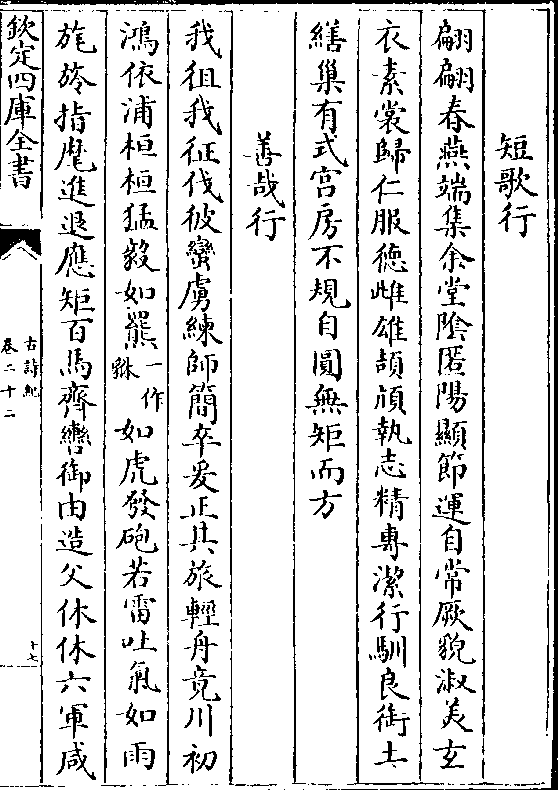 短歌行
翩翩春燕端集余堂隂匿陽顯節運自常厥貌淑美玄
衣素裳歸仁服徳雌雄頡頏執志精專潔行馴良銜土
繕巢有式宫房不規自圓無矩而方
善哉行
我徂我征伐彼蠻虜練師簡卒爰正其旅輕舟竟川初
鴻依浦桓桓猛毅如羆一作貅如虎發砲若雷吐氣如雨
旄旍指麾進退應矩百馬齊轡御由造父休休六軍咸
欽定四庫全書
古詩紀
卷二十二
十七